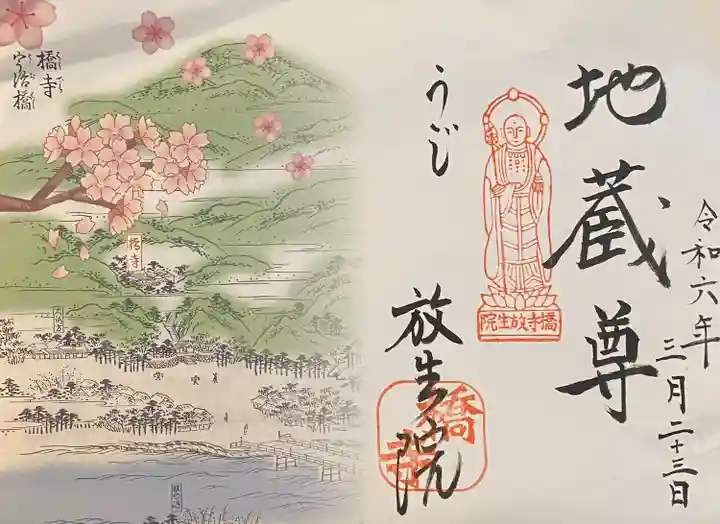 令和六年
三月二十三日
地蔵尊
橋寺放生院
うじ
放生院
橋寺
橋寺
はしでら
宇治橋
うぢばし
橋寺